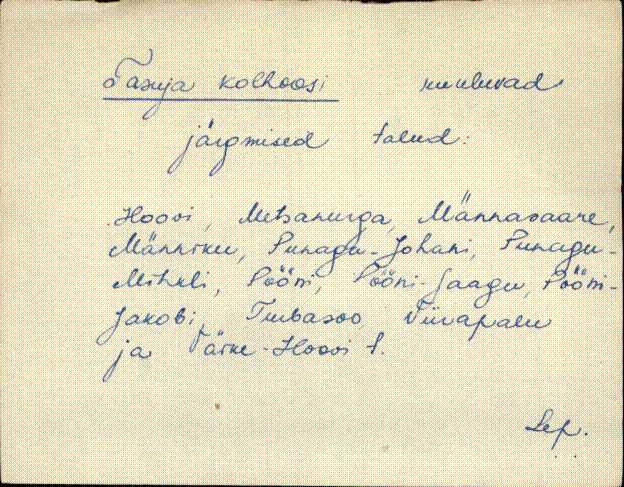 Tasuja kolhoosi kuuluvad
järgmised talud:
Hoovi, Metsanurga, Männavaare,
Männiku, Punagu-Johani, Punagu-
Mihkli, Pööni, Pööni-Jaagu, Pööni-
Jakobi, Tuubasoo, Viirapalu
ja Väike-Hoovi t.
Sep.